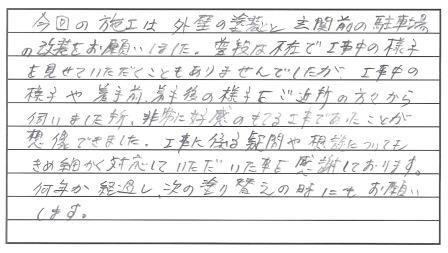 今回の施工は外壁の塗装と玄関前の駐車場
の改装をお願いしました。普段は不在で工事中の様子
を見せていただくこともありませんでしたが、工事中の
様子や着手前、着手後の様子をご近所の方々から
伺いました所、非常に好感のもてる工事であったことが
想像できました。工事に係る疑問や相談についても
きめ細かく対応していただいた事を感謝しております。
何年か経過し、次の塗り替えの時にもお願い
します。